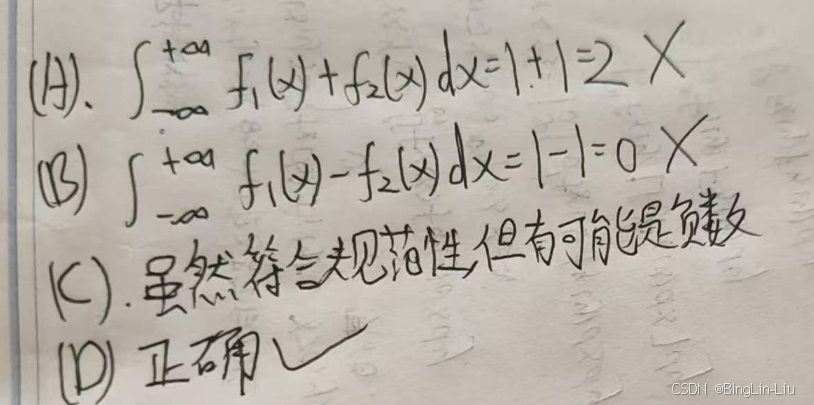 (A). ∫_{-∞}^{+∞} f₁(x)+f₂(x)dx=1+1=2 ×
(B) ∫_{-∞}^{+∞} f₁(x)-f₂(x)dx=1-1=0 ×
(C). 虽然符合规范性,但有可能是负数
(D) 正确 ✓
CSDN @BingLin-Liu